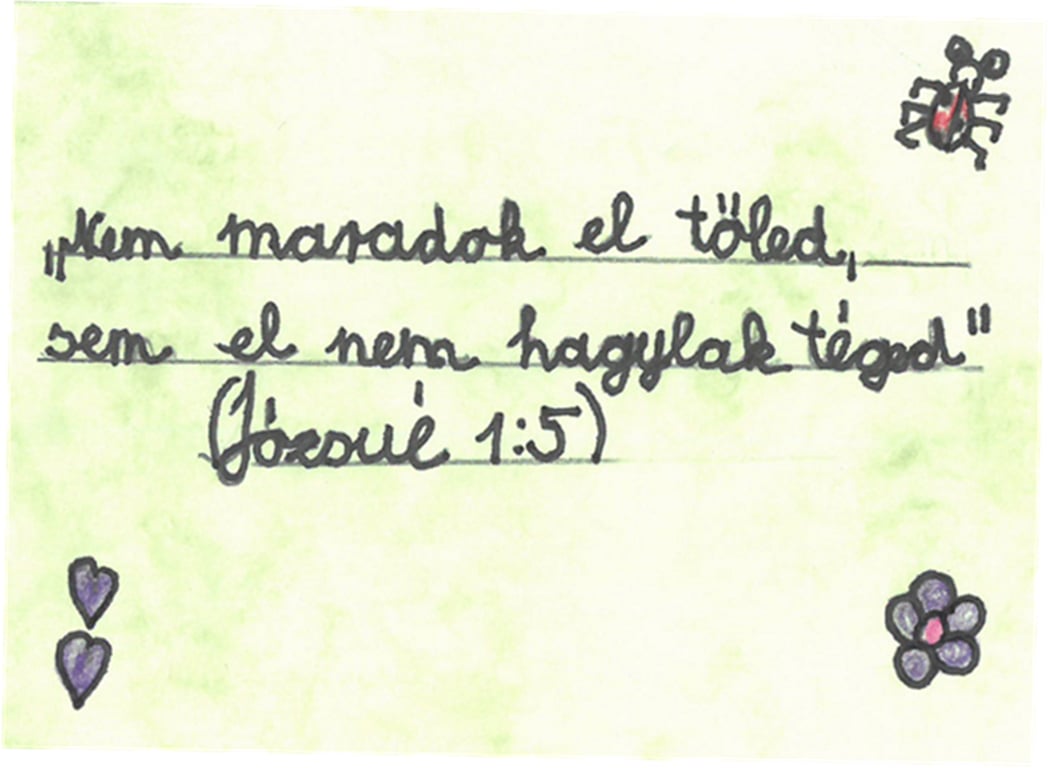 „Nem maradok el tőled,
sem el nem hagylak téged"
(Józsué 1:5)